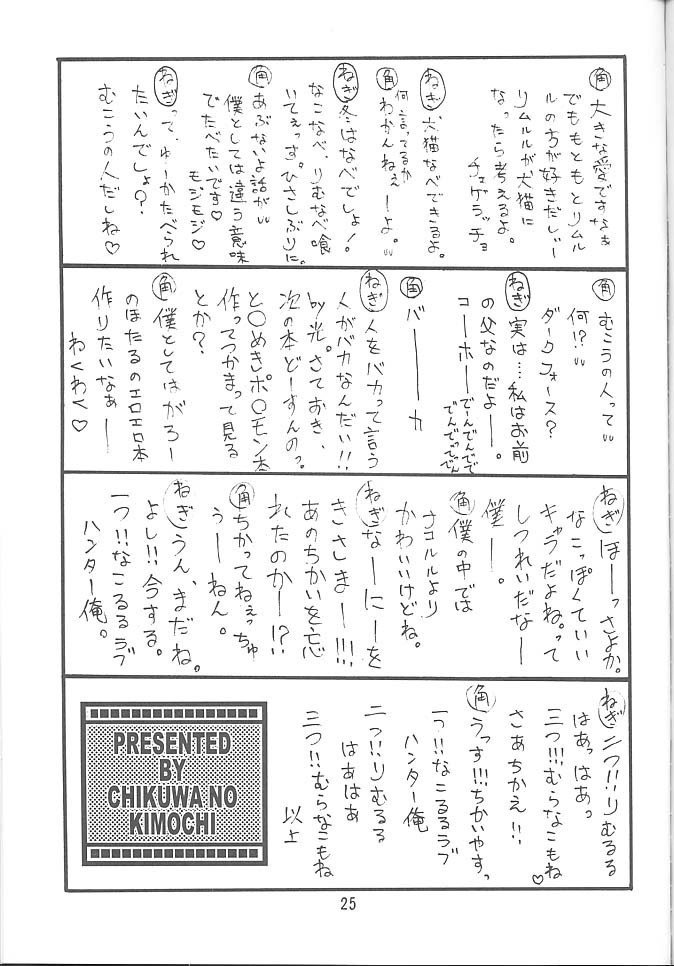 角 大きな愛ですなぁ
でももともとリムル
ルの方が好きだしぃー
リムルルが犬猫に
なったら考えるよ。
チェゲラッチョ
ねぎ 犬猫なべできるよ。
角 何言ってるか
わかんねぇーーよ。
ねぎ 冬はなべでしょ!
なこなべ、りむなべ喰
いてぇっす。ひさしぶりに。
角 あぶないよ話が
僕としては違う意味
でたべたいです♡
モジモジ♡
ねぎ って、ゆーかたべられ
たいんでしょ?
むこうの人だしね♡
角 むこうの人って
何!?
ダークフォース?
ねぎ 実は…私はお前
の父なのだよー。
コーホー でーんでんでんで
でんでってでん
角 バーーーカ
ねぎ 人をバカって言う
人がバカなんだい!!
by光。さておき、
次の本どーすんの?
と○めきポ○モン本
作ってつかまって見る
とか?
角 僕としてはがろー
のほたるのエロエロ本
作りたいなぁーー
わくわく♡
ねぎ ほーっさよか。
なこっぽくていい
キャラだよね。って
しつれいだなー
僕ー。
角 僕の中では
ナコルルより
かわいいけどね。
ねぎ なーにーを
きさしまー!!!
あのちかいを忘
れたのかー!?
角 ちかってねぇっちゅ
うーねん。
ねぎ うん、まだね。
よし!!今する。
一つ!!なこるるラブ
ハンター俺。
ねぎ 二つ!!りむるる
はあっはぁっ
三つ!!!むらなこもね♡
さあちかえ!!
角 うっす!!!ちかいやすっ
一つ!!なこるるラブ
ハンター俺
二つ!!りむるる
はあはあ
三つ!!むらなこもね
以上
PRESENTED
BY
CHIKUWA NO
KIMOCHI
25